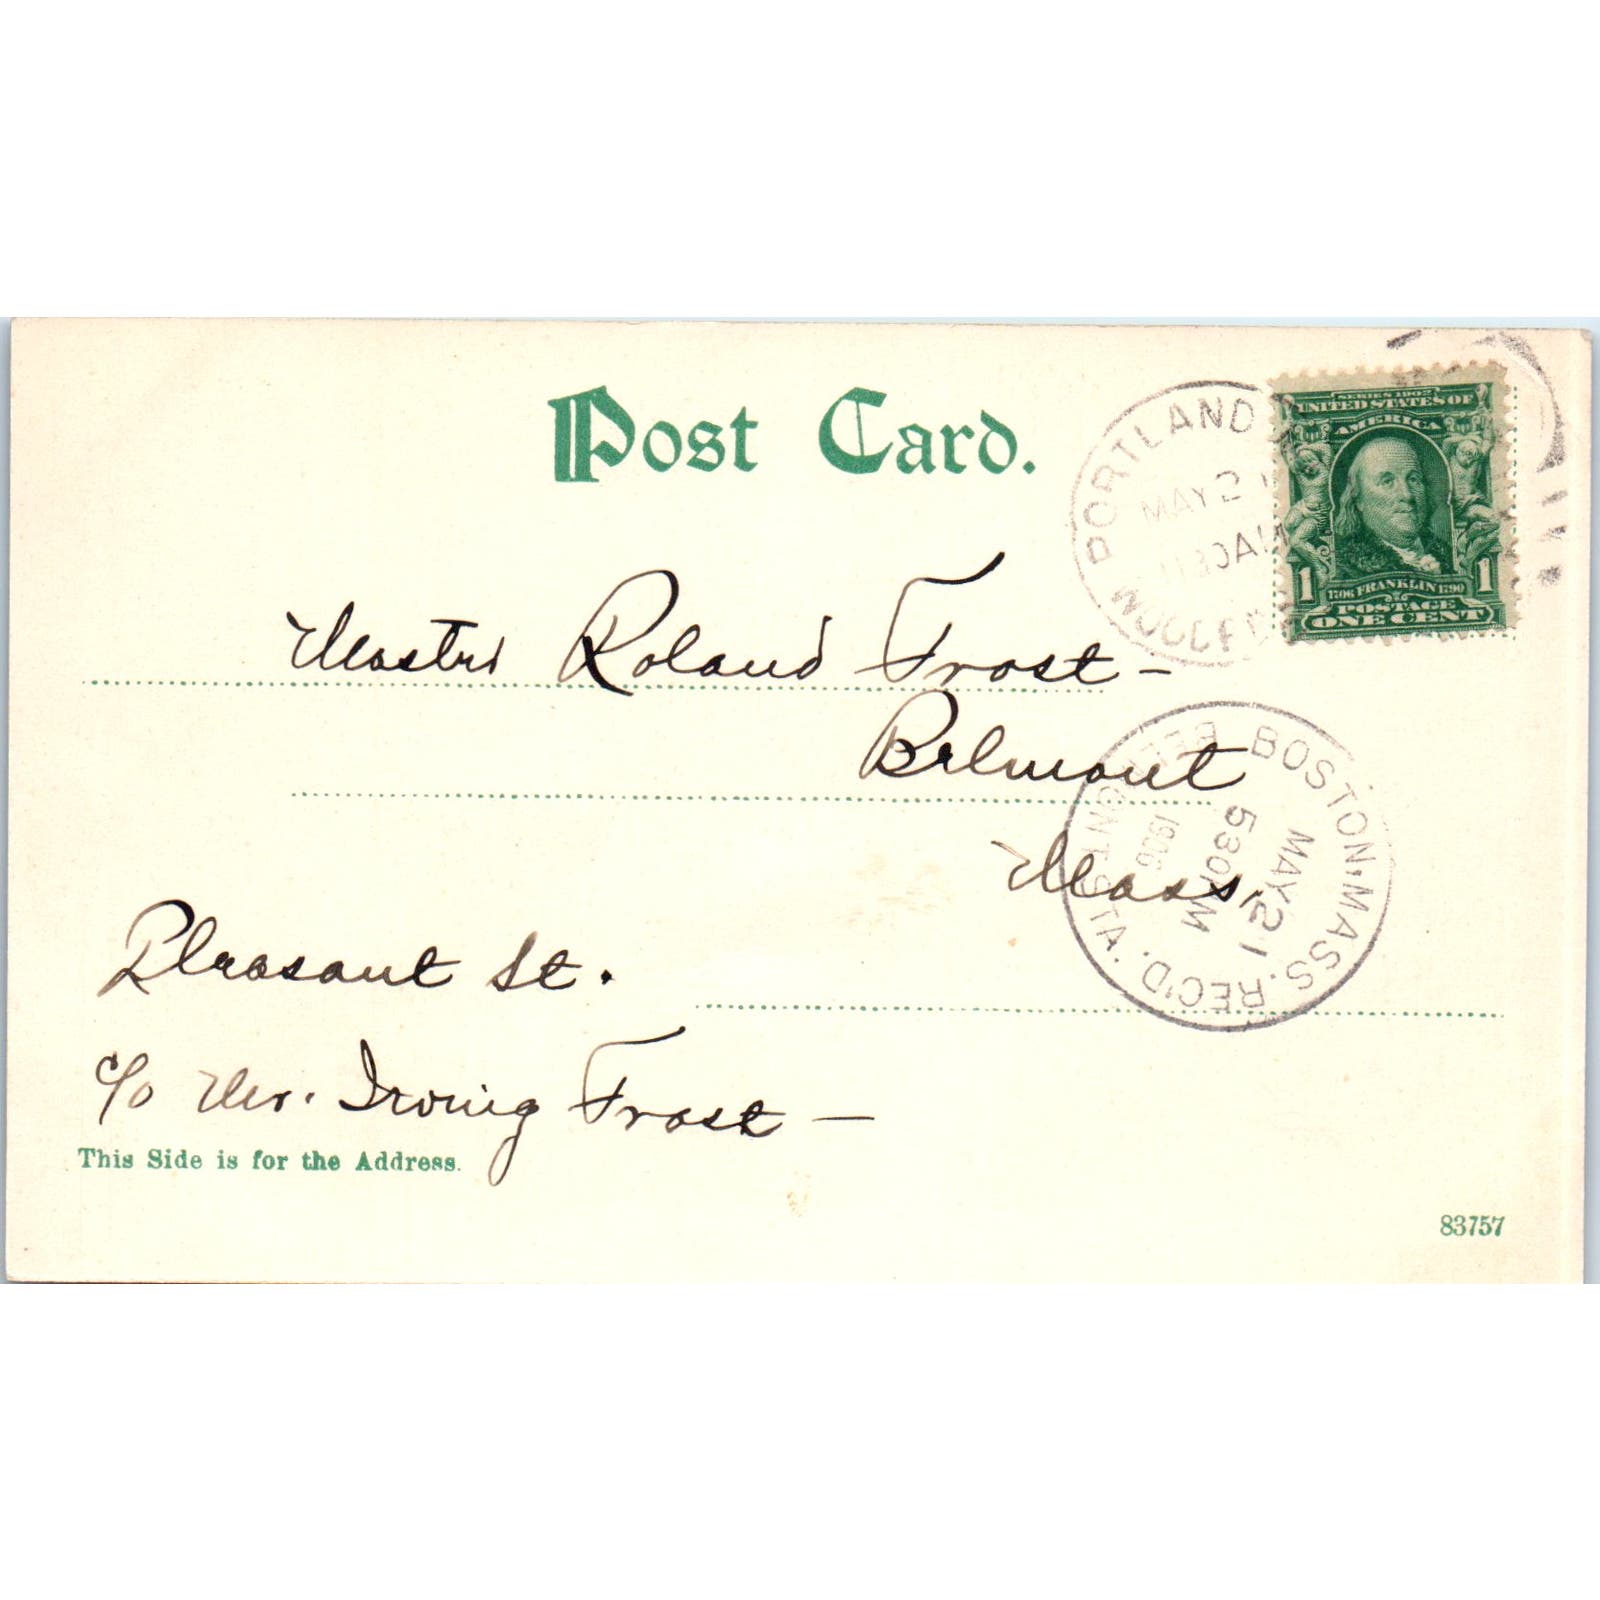 Post Card.
PORTLAND
MAY 2
30 AM
SERIES 1902
UNITED STATES OF
AMERICA
1 1706 FRANKLIN 1790 1
POSTAGE
ONE CENT
Master Roland Frost –
Belmont
Mass.
BOSTON, MASS.
MAY 21
530 AM
1906
REC'D.
STA.
Pleasant St.
c/o Mr. Irving Frost –
This Side is for the Address.
83757